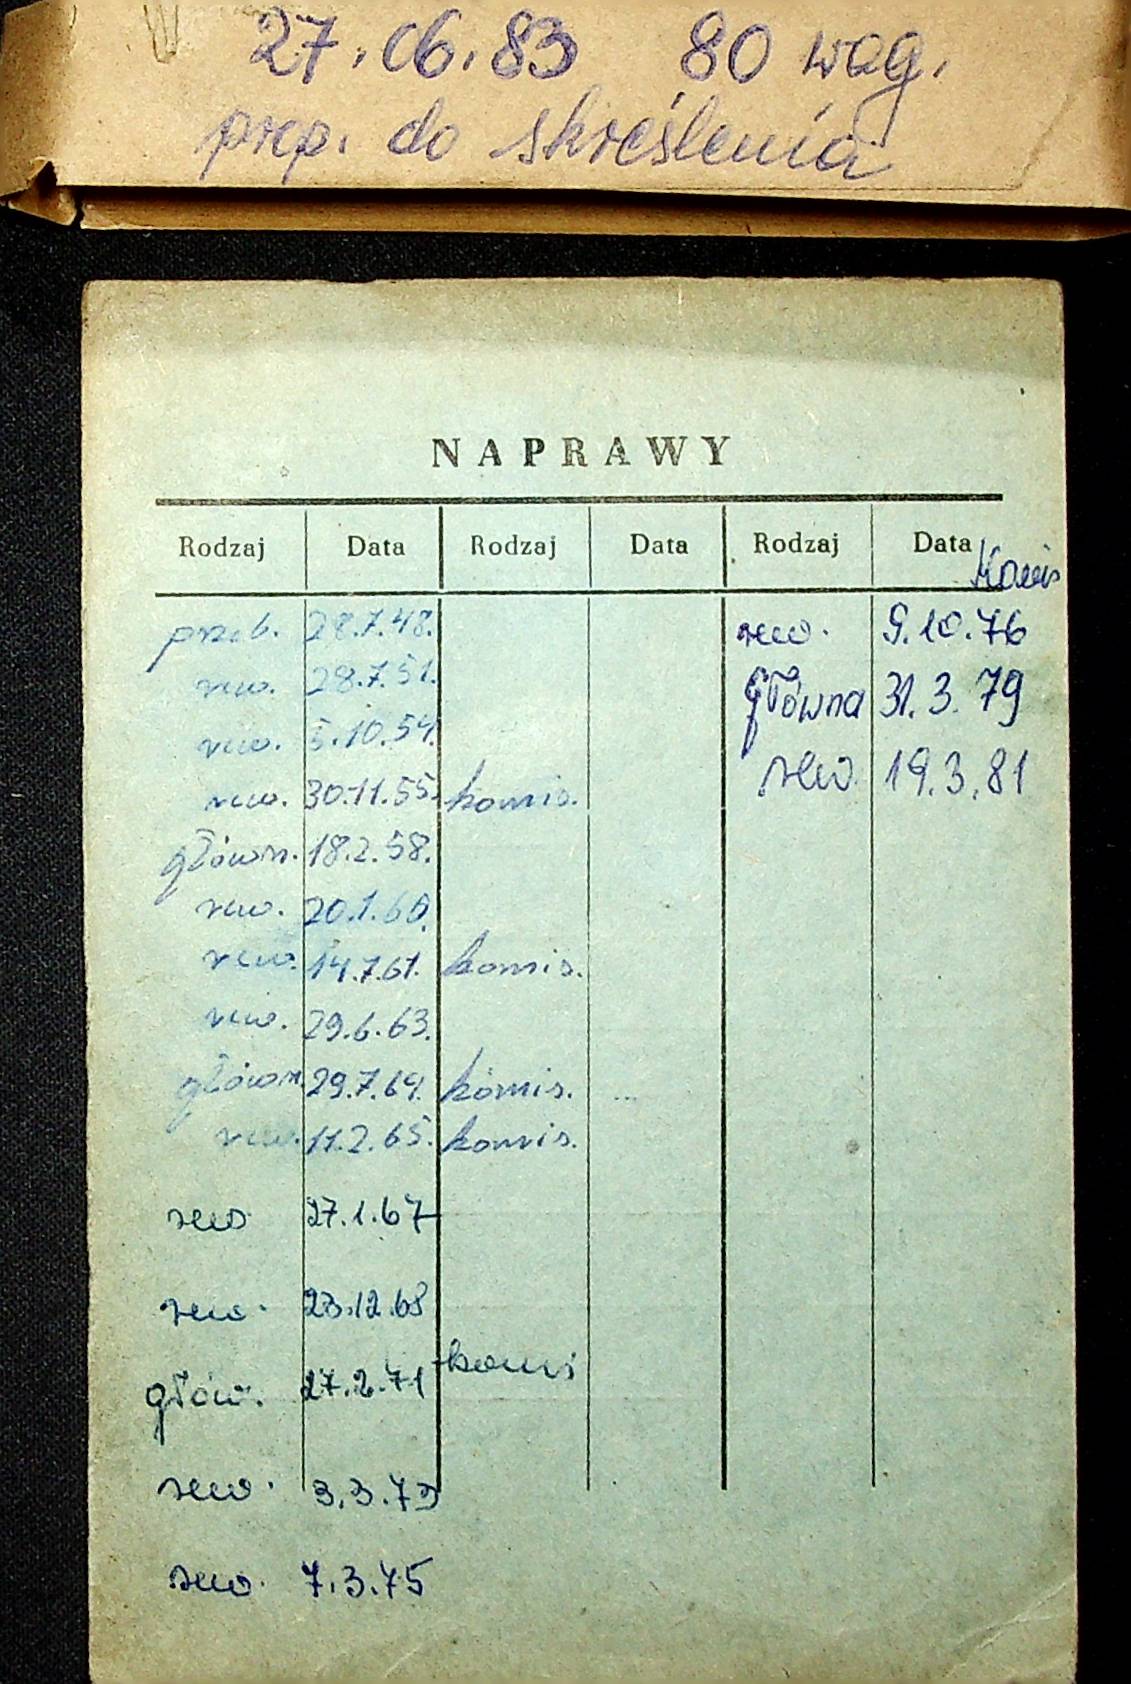 27.06.83 80 wag.
prop. do skreślenia
NAPRAWY
Rodzaj Data Rodzaj Data Rodzaj Data
Komis
przeb. 28.7.48. rew. 9.10.76
rew. 28.7.51. główna 31.3.79
rew. 5.10.54. rew. 19.3.81
rew. 30.11.55. komis.
główn. 18.2.58.
rew. 20.1.60.
rew. 14.7.61. komis.
rew. 29.6.63.
główn. 29.7.64. komis.
rew. 11.2.65. komis.
rew 27.1.67
rew. 23.12.68
głów. 27.2.71 komis
rew. 3.3.73
rew. 7.3.75